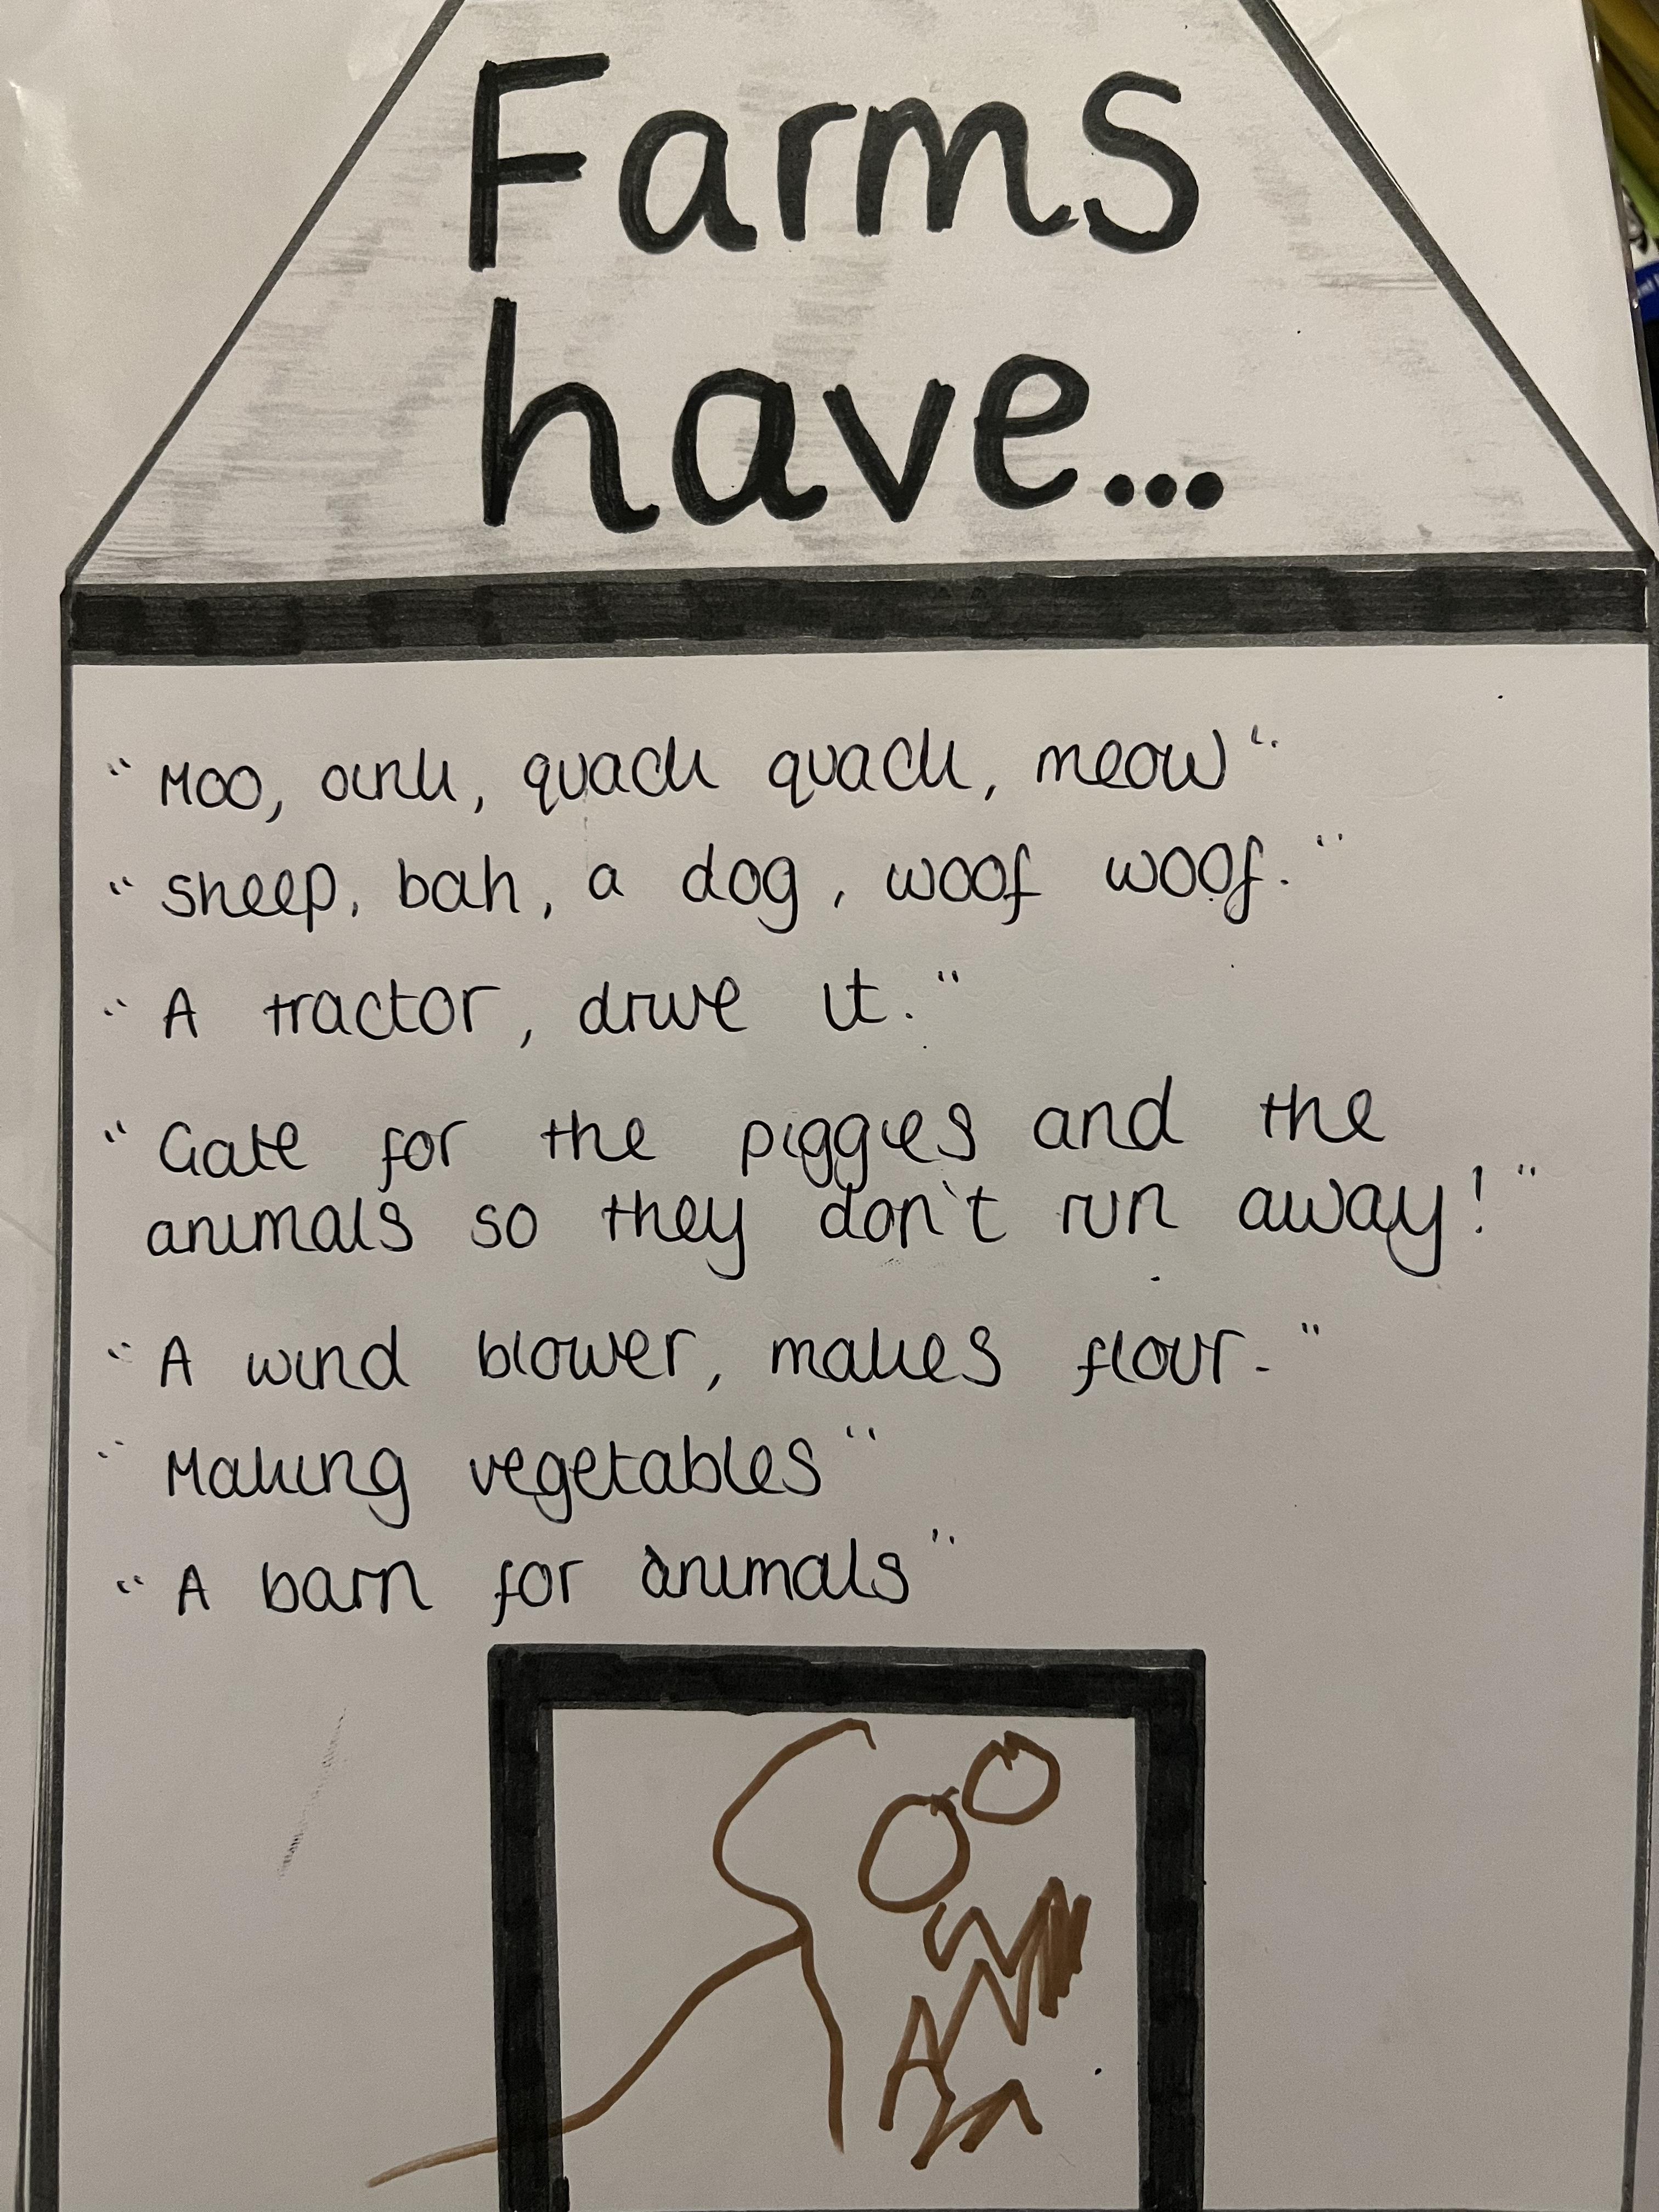 Farms
have...
"Moo, oink, quack quack, meow".
"sheep, bah, a dog, woof woof."
"A tractor, drive it."
"Gate for the piggies and the
animals so they don't run away!"
"A wind blower, makes flour."
"Making vegetables"
"A barn for animals"